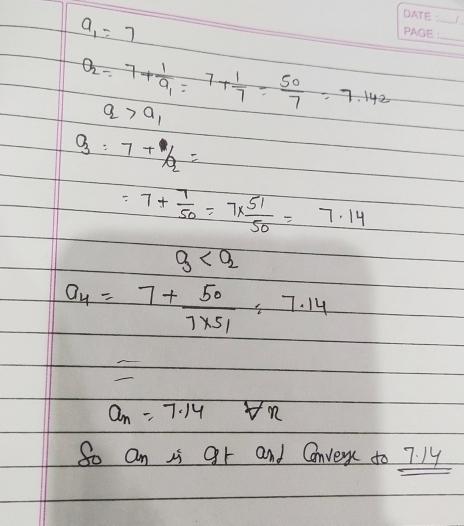 DATE:
PAGE:
a₁ = 7
a₂ = 7 + 1/a₁ = 7 + 1/7 = 50/7 = 7.142
a₂ > a₁
a₃ = 7 + 1/a₂ =
= 7 + 7/50 = 7 × 51/50 = 7.14
a₃ < a₂
a₄ = 7 + 50/(7×51) = 7.14
=
aₙ = 7.14 ∀ n
So aₙ is and Converge to 7.14